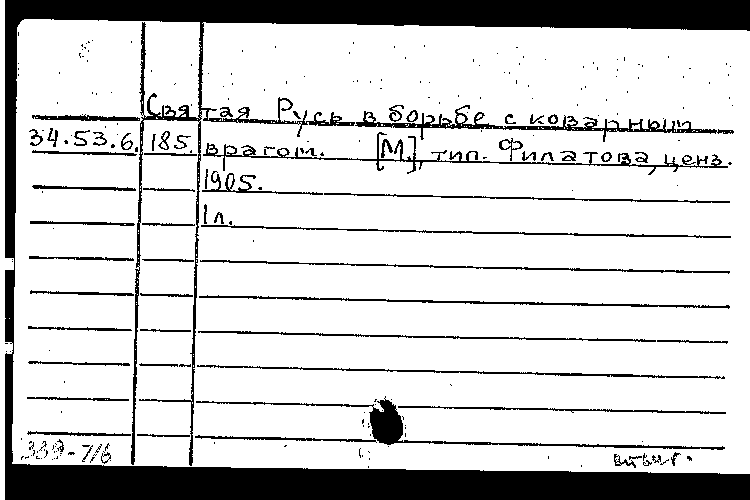 Святая Русь в борьбе с коварным
34.53.6. 185. врагом. [М.], тип. Филатова, ценз.
1905.
1 л.
339-7/6